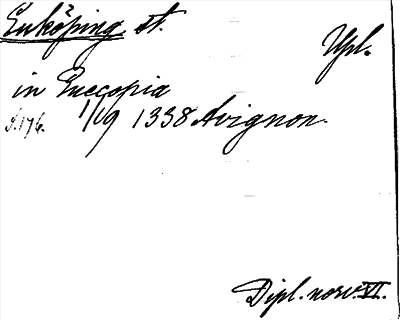 Enköping st.
Upl.
in Encopia
S. 176. 1/10 1338 Avignon.
Dipl. norv. VI.